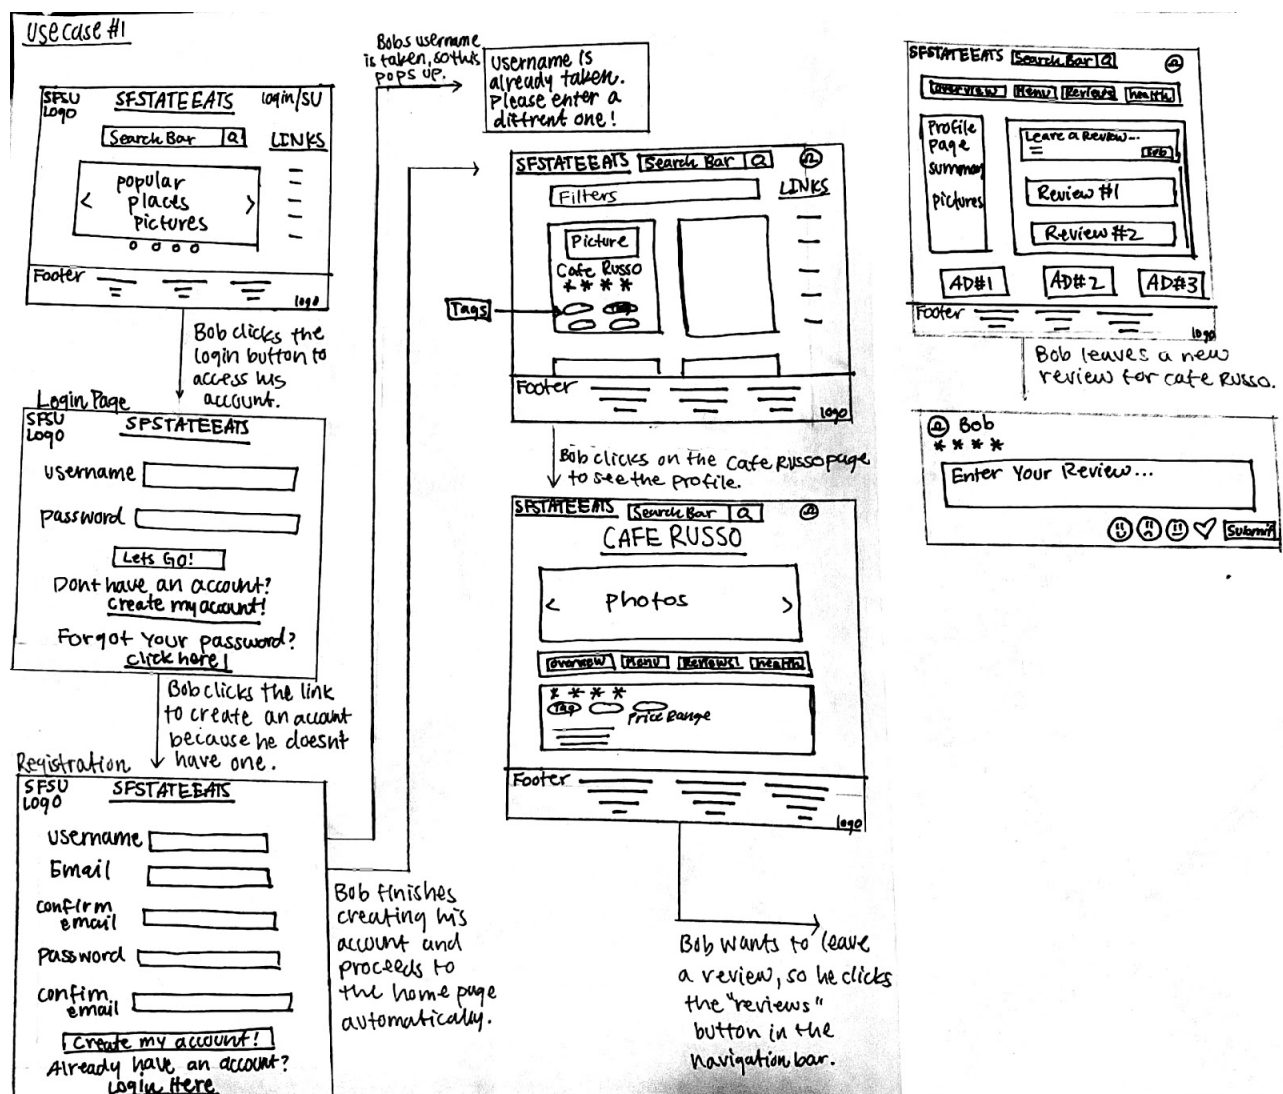 Use case #1
SFSU
Logo
SFSTATEEATS
login/SU
Search Bar
LINKS
popular
places
pictures
<
>
Footer
logo
Bob clicks the
login button to
access his
account.
Login Page
SFSU
Logo
SFSTATEEATS
username
password
Lets GO!
Dont have an account?
Create my account!
Forgot Your password?
click here!
Bob clicks the link
to create an account
because he doesn't
have one.
Registration
SFSU
Logo
SFSTATEEATS
username
Email
confirm
email
password
confirm
email
Create my account!
Already have an account?
Login Here
Bobs username
is taken, so this
pops up.
Username is
already taken.
Please enter a
diffrent one!
Bob finishes
creating his
account and
proceeds to
the home page
automatically.
SFSTATEEATS
Search Bar
LINKS
Filters
Picture
Cafe Russo
* * * *
Tags
Tag
Footer
logo
Bob clicks on the Cafe Russo page
to see the profile.
SFSTATEEATS
Search Bar
CAFE RUSSO
< Photos >
overview
Menu
Reviews!
health
* * * *
Tag
Price Range
Footer
logo
Bob wants to leave
a review, so he clicks
the "reviews"
button in the
navigation bar.
SFSTATEEATS
Search Bar
overview
Menu
Reviews
health
Profile
page
summary
pictures
Leave a Review...
Sub
Review #1
Review #2
AD#1
AD#2
AD#3
Footer
logo
Bob leaves a new
review for cafe Russo.
Bob
* * * *
Enter Your Review...
Submit